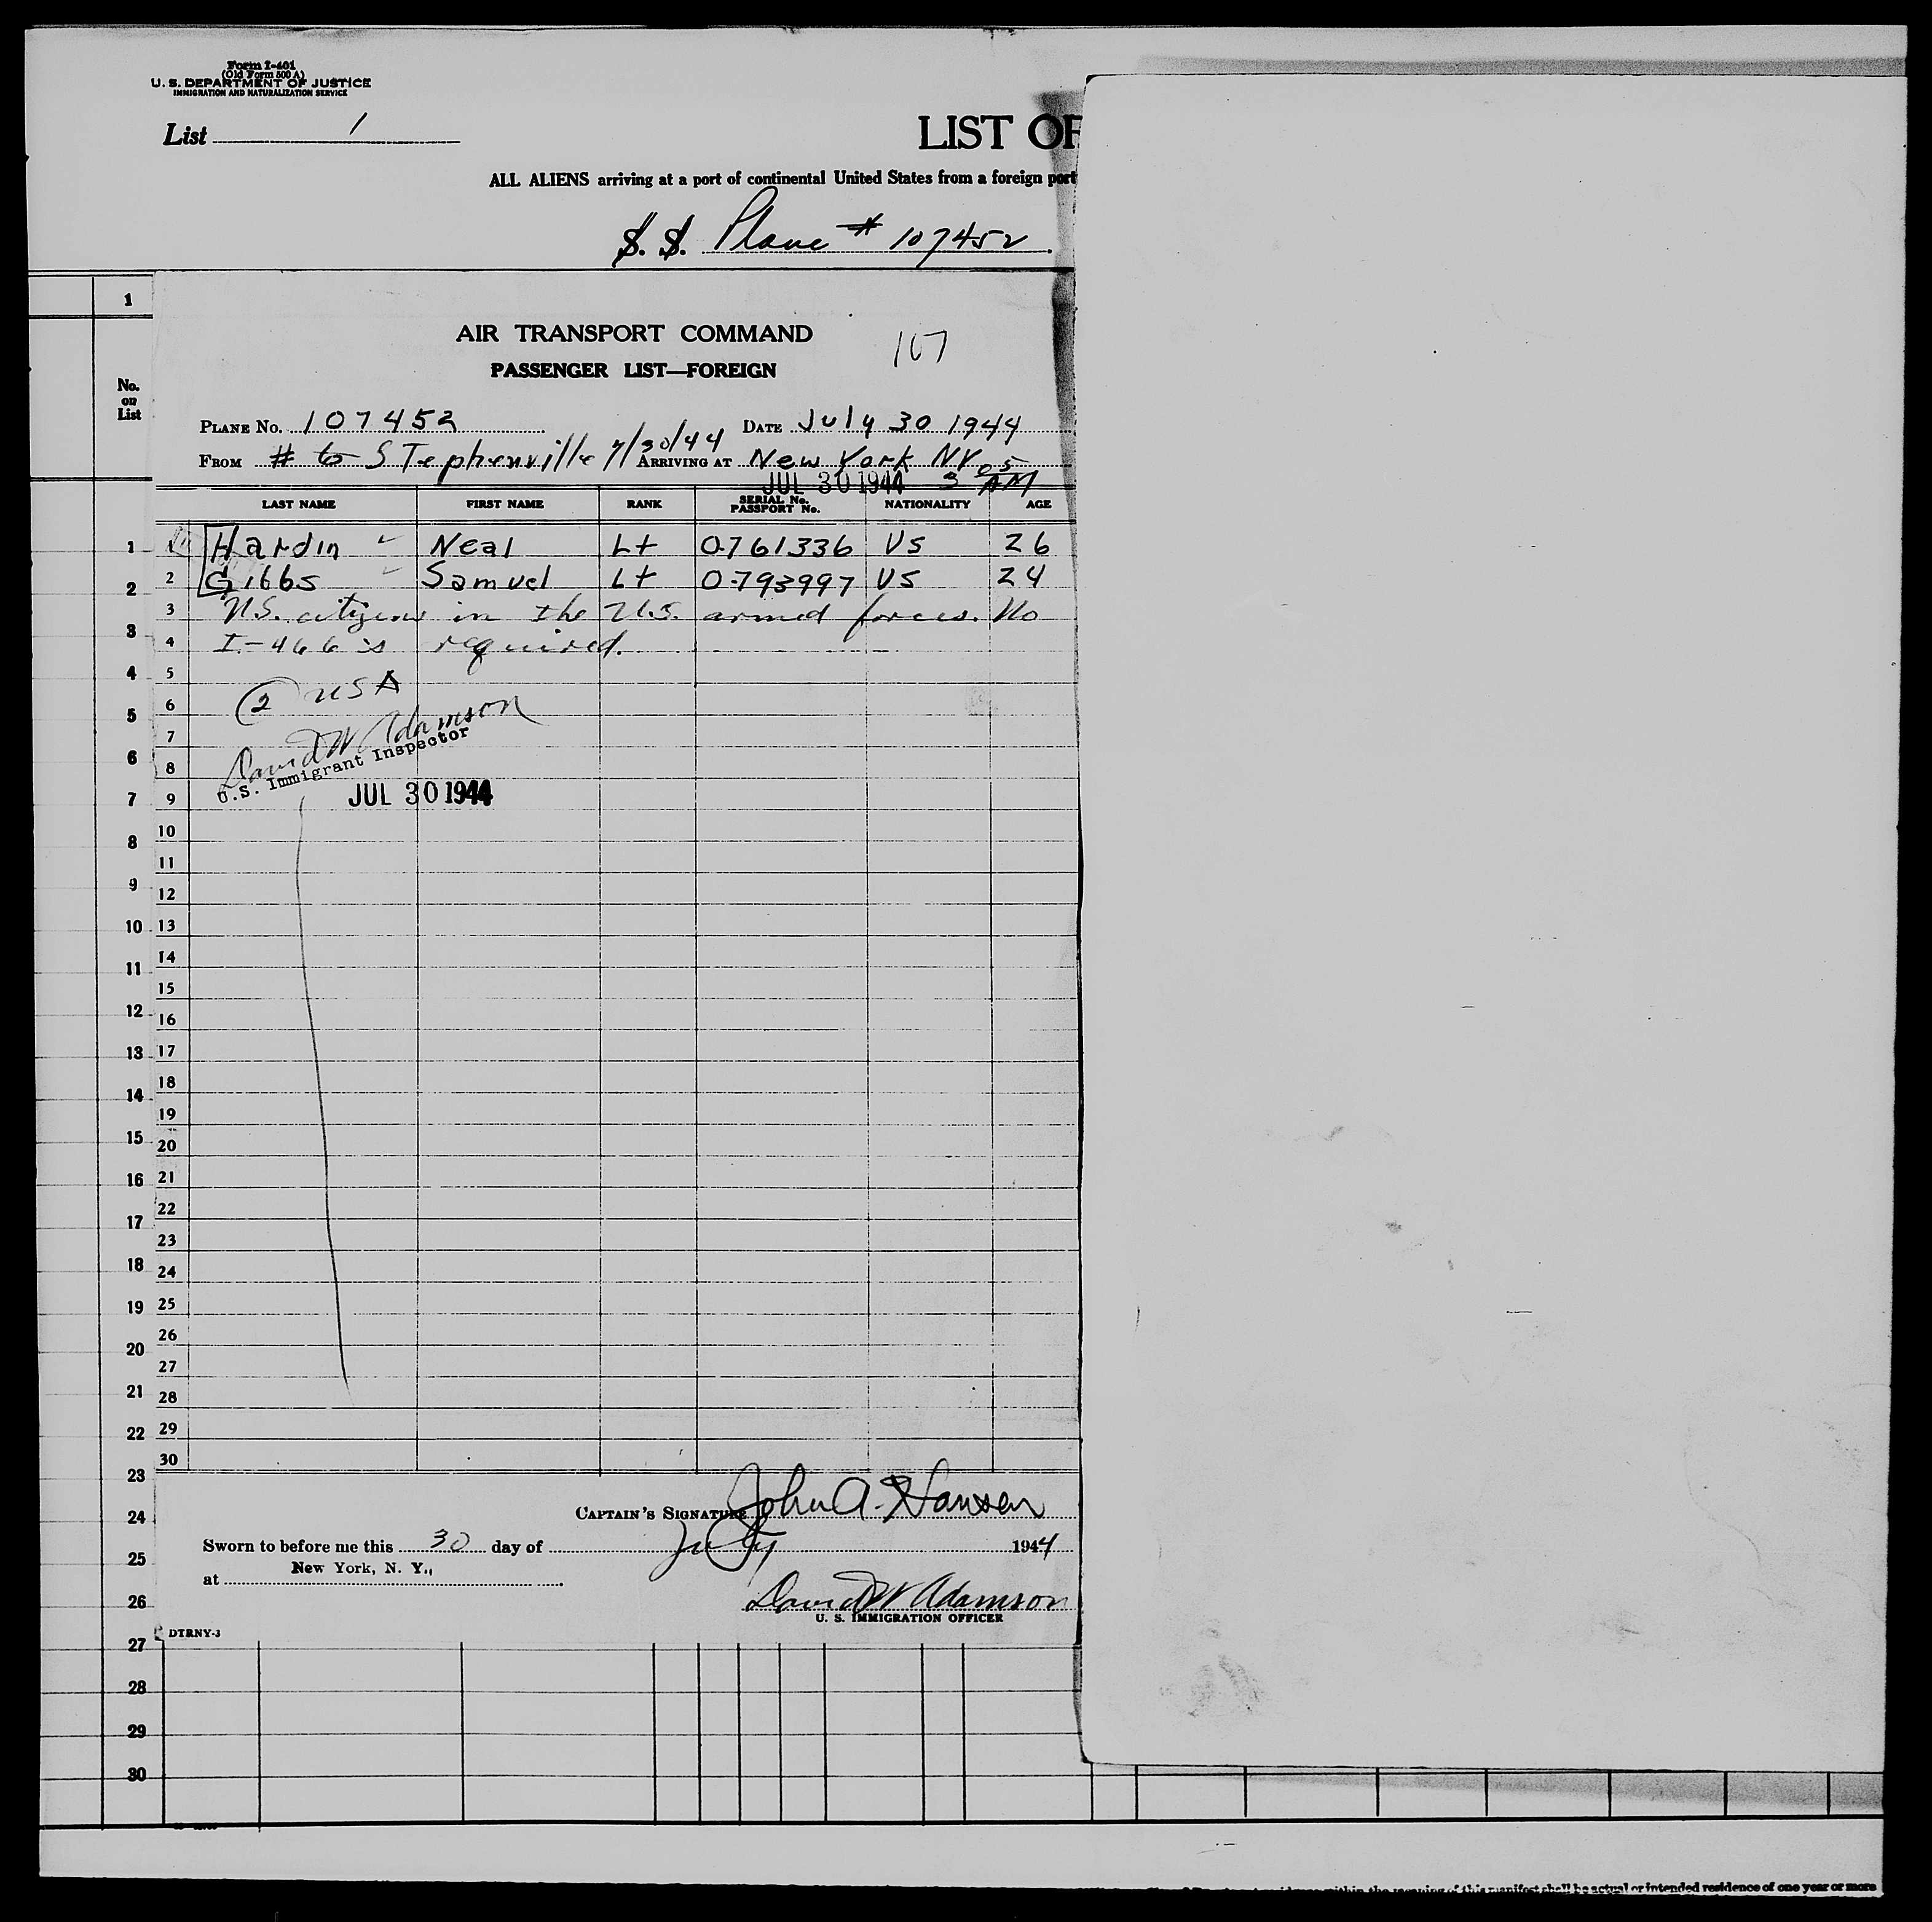 Form I-401
(Old Form 500 A)
U. S. DEPARTMENT OF JUSTICE
IMMIGRATION AND NATURALIZATION SERVICE
List 1
LIST OF
ALL ALIENS arriving at a port of continental United States from a foreign port
S. S. Plane # 107452
1
No.
on
List
AIR TRANSPORT COMMAND
107
PASSENGER LIST—FOREIGN
PLANE No. 107452 DATE July 30 1944
FROM # to STephenville 7/30/44 ARRIVING AT New York NY
JUL 30 1944 3 05 AM
LAST NAME FIRST NAME RANK SERIAL No. PASSPORT No. NATIONALITY AGE
1 Hardin Neal Lt 0-761336 US 26
2 Gibbs Samuel Lt 0-793997 US 24
3 U.S. citizens in the U.S. armed forces. No
4 I-466's required.
5
6 2 USA
7 David W Adamson
8 U.S. Immigrant Inspector
9 JUL 30 1944
10
11
12
13
14
15
16
17
18
19
20
21
22
23
24
25
26
27
28
29
30
1
2
3
4
5
6
7
8
9
10
11
12
13
14
15
16
17
18
19
20
21
22
23
24
25
26
27
28
29
30
CAPTAIN'S SIGNATURE John A. Hansen
Sworn to before me this 30 day of July 1944
at New York, N. Y.,
David W Adamson
U. S. IMMIGRATION OFFICER
DTRNY-3
within the meaning of this manifest shall be actual or intended residence of one year or more